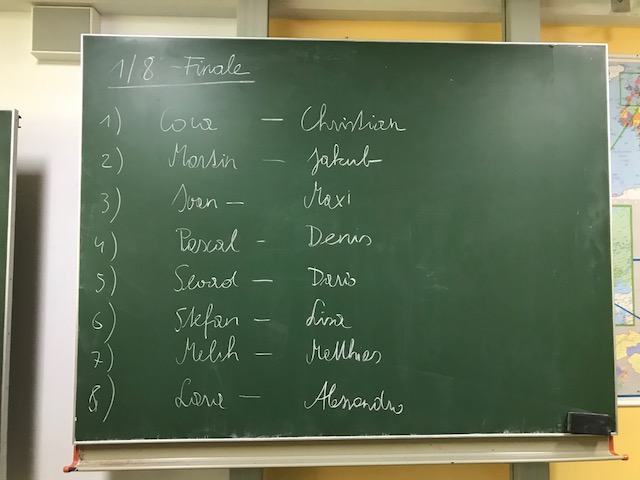 1/8 - Finale
1) Cora - Christian
2) Martin - Jakub
3) Ivan - Maxi
4) Pascal - Denis
5) - Dario
6) Stefan - Lina
7) - Matthias
8) Lara - Alessandro